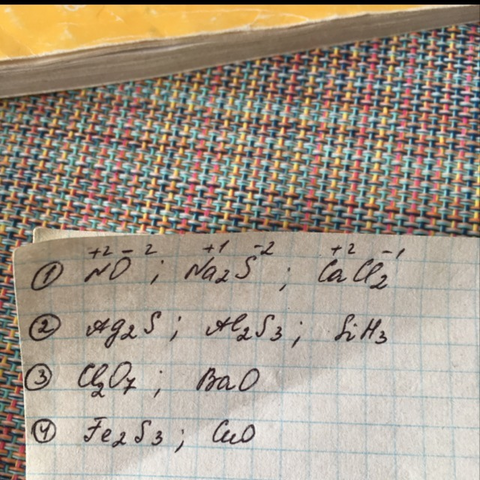 ① N⁺²O⁻² ; Na₂⁺¹S⁻² ; Ca⁺²Cl₂⁻¹
② Ag₂S ; Al₂S₃ ; SiH₃
③ Cl₂O₇ ; BaO
④ Fe₂S₃ ; CuO